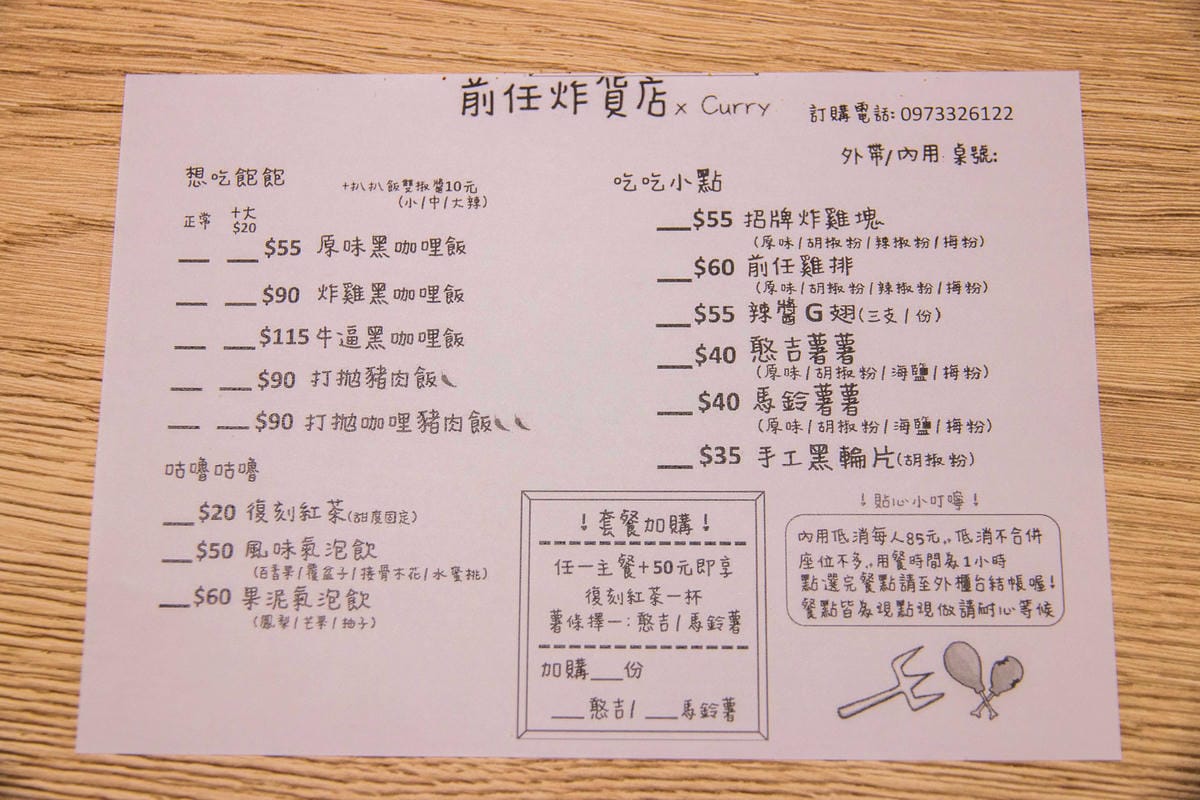 前任炸貨店 x Curry
訂購電話: 0973326122
外帶/內用 桌號:
想吃飽飽
+扒扒飯雙椒醬10元
(小/中/大辣)
正常 +大
$20
$55 原味黑咖哩飯
$90 炸雞黑咖哩飯
$115 牛逼黑咖哩飯
$90 打拋豬肉飯
$90 打拋咖哩豬肉飯
咕嚕咕嚕
$20 復刻紅茶(甜度固定)
$50 風味氣泡飲
(百香果/覆盆子/接骨木花/水蜜桃)
$60 果泥氣泡飲
(鳳梨/芒果/柚子)
吃吃小點
$55 招牌炸雞塊
(原味/胡椒粉/辣椒粉/梅粉)
$60 前任雞排
(原味/胡椒粉/辣椒粉/梅粉)
$55 辣醬G翅(三支/份)
$40 憨吉薯薯
(原味/胡椒粉/海鹽/梅粉)
$40 馬鈴薯薯
(原味/胡椒粉/海鹽/梅粉)
$35 手工黑輪片(胡椒粉)
!套餐加購!
任一主餐+50元即享
復刻紅茶一杯
薯條擇一:憨吉/馬鈴薯
加購___份
___憨吉/ ___馬鈴薯
!貼心小叮嚀!
內用低消每人85元,,低消不合併
座位不多,,用餐時間為1小時
點選完餐點請至外櫃台結帳喔!
餐點皆為現點現做請耐心等候